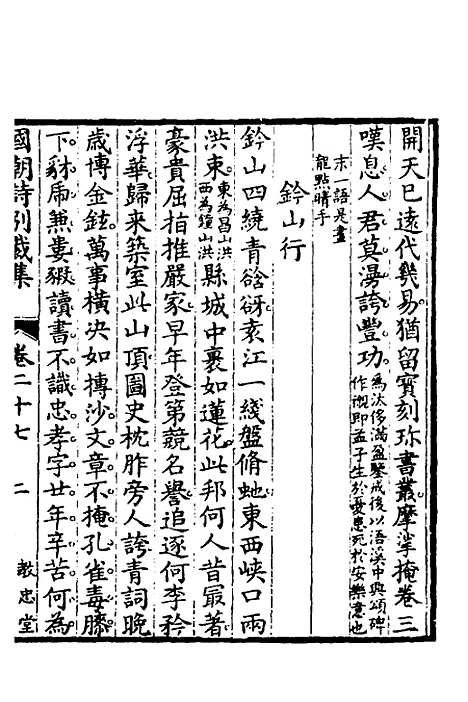 開天已遠代幾易猶留寶刻珎書叢摩挲掩卷三
嘆息人君莫漫誇豐功為汰侈滿盈鑒戒後以浯溪中興頌碑
作襯即孟子生於憂患死於安樂意也
末一語是畫
龍點睛手
鈐山行
鈐山四繞青谽谺袁江一綫盤脩虵東西峽口兩
洪東東為昌山洪
西為鐘山洪縣城中裹如蓮花此邦何人昔冣著
豪貴屈指推嚴家早年登第競名譽追逐何李矜
浮華歸來築室此山頂圖史枕胙旁人誇青詞晚
歲博金鉉萬事橫决如摶沙文章不掩孔雀毒膝
下豺乕兼婁豭讀書不識忠孝字廿年辛苦何為
國朝詩別裁集
卷二十七
二
教忠堂